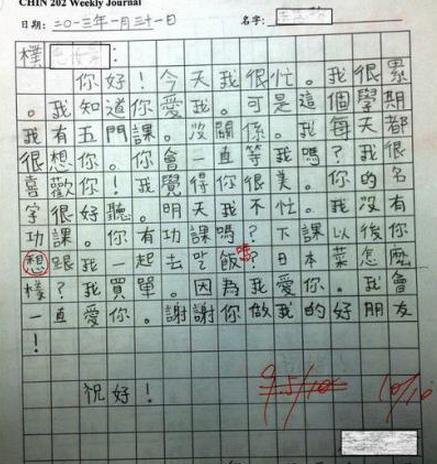 CHIN 202 Weekly Journal
日期: 二〇一三年一月三十一日 名字:
樸 :
你好！今天我很忙。我很累
。我知道你愛我。可是這個學期
我有五門課。沒關係。我每天都
很想你。你會一直等我嗎？我很
喜歡你！我覺得你很美。你的名
字很好聽。明天我不忙。我沒有
功課。你有功課嗎？下課以後你
想跟我一起去吃飯嗎？日本菜怎麼
樣？我買單。因為我愛你。我會
一直愛你。謝謝你做我的好朋友
！
祝好！ 9.5/10 10/10